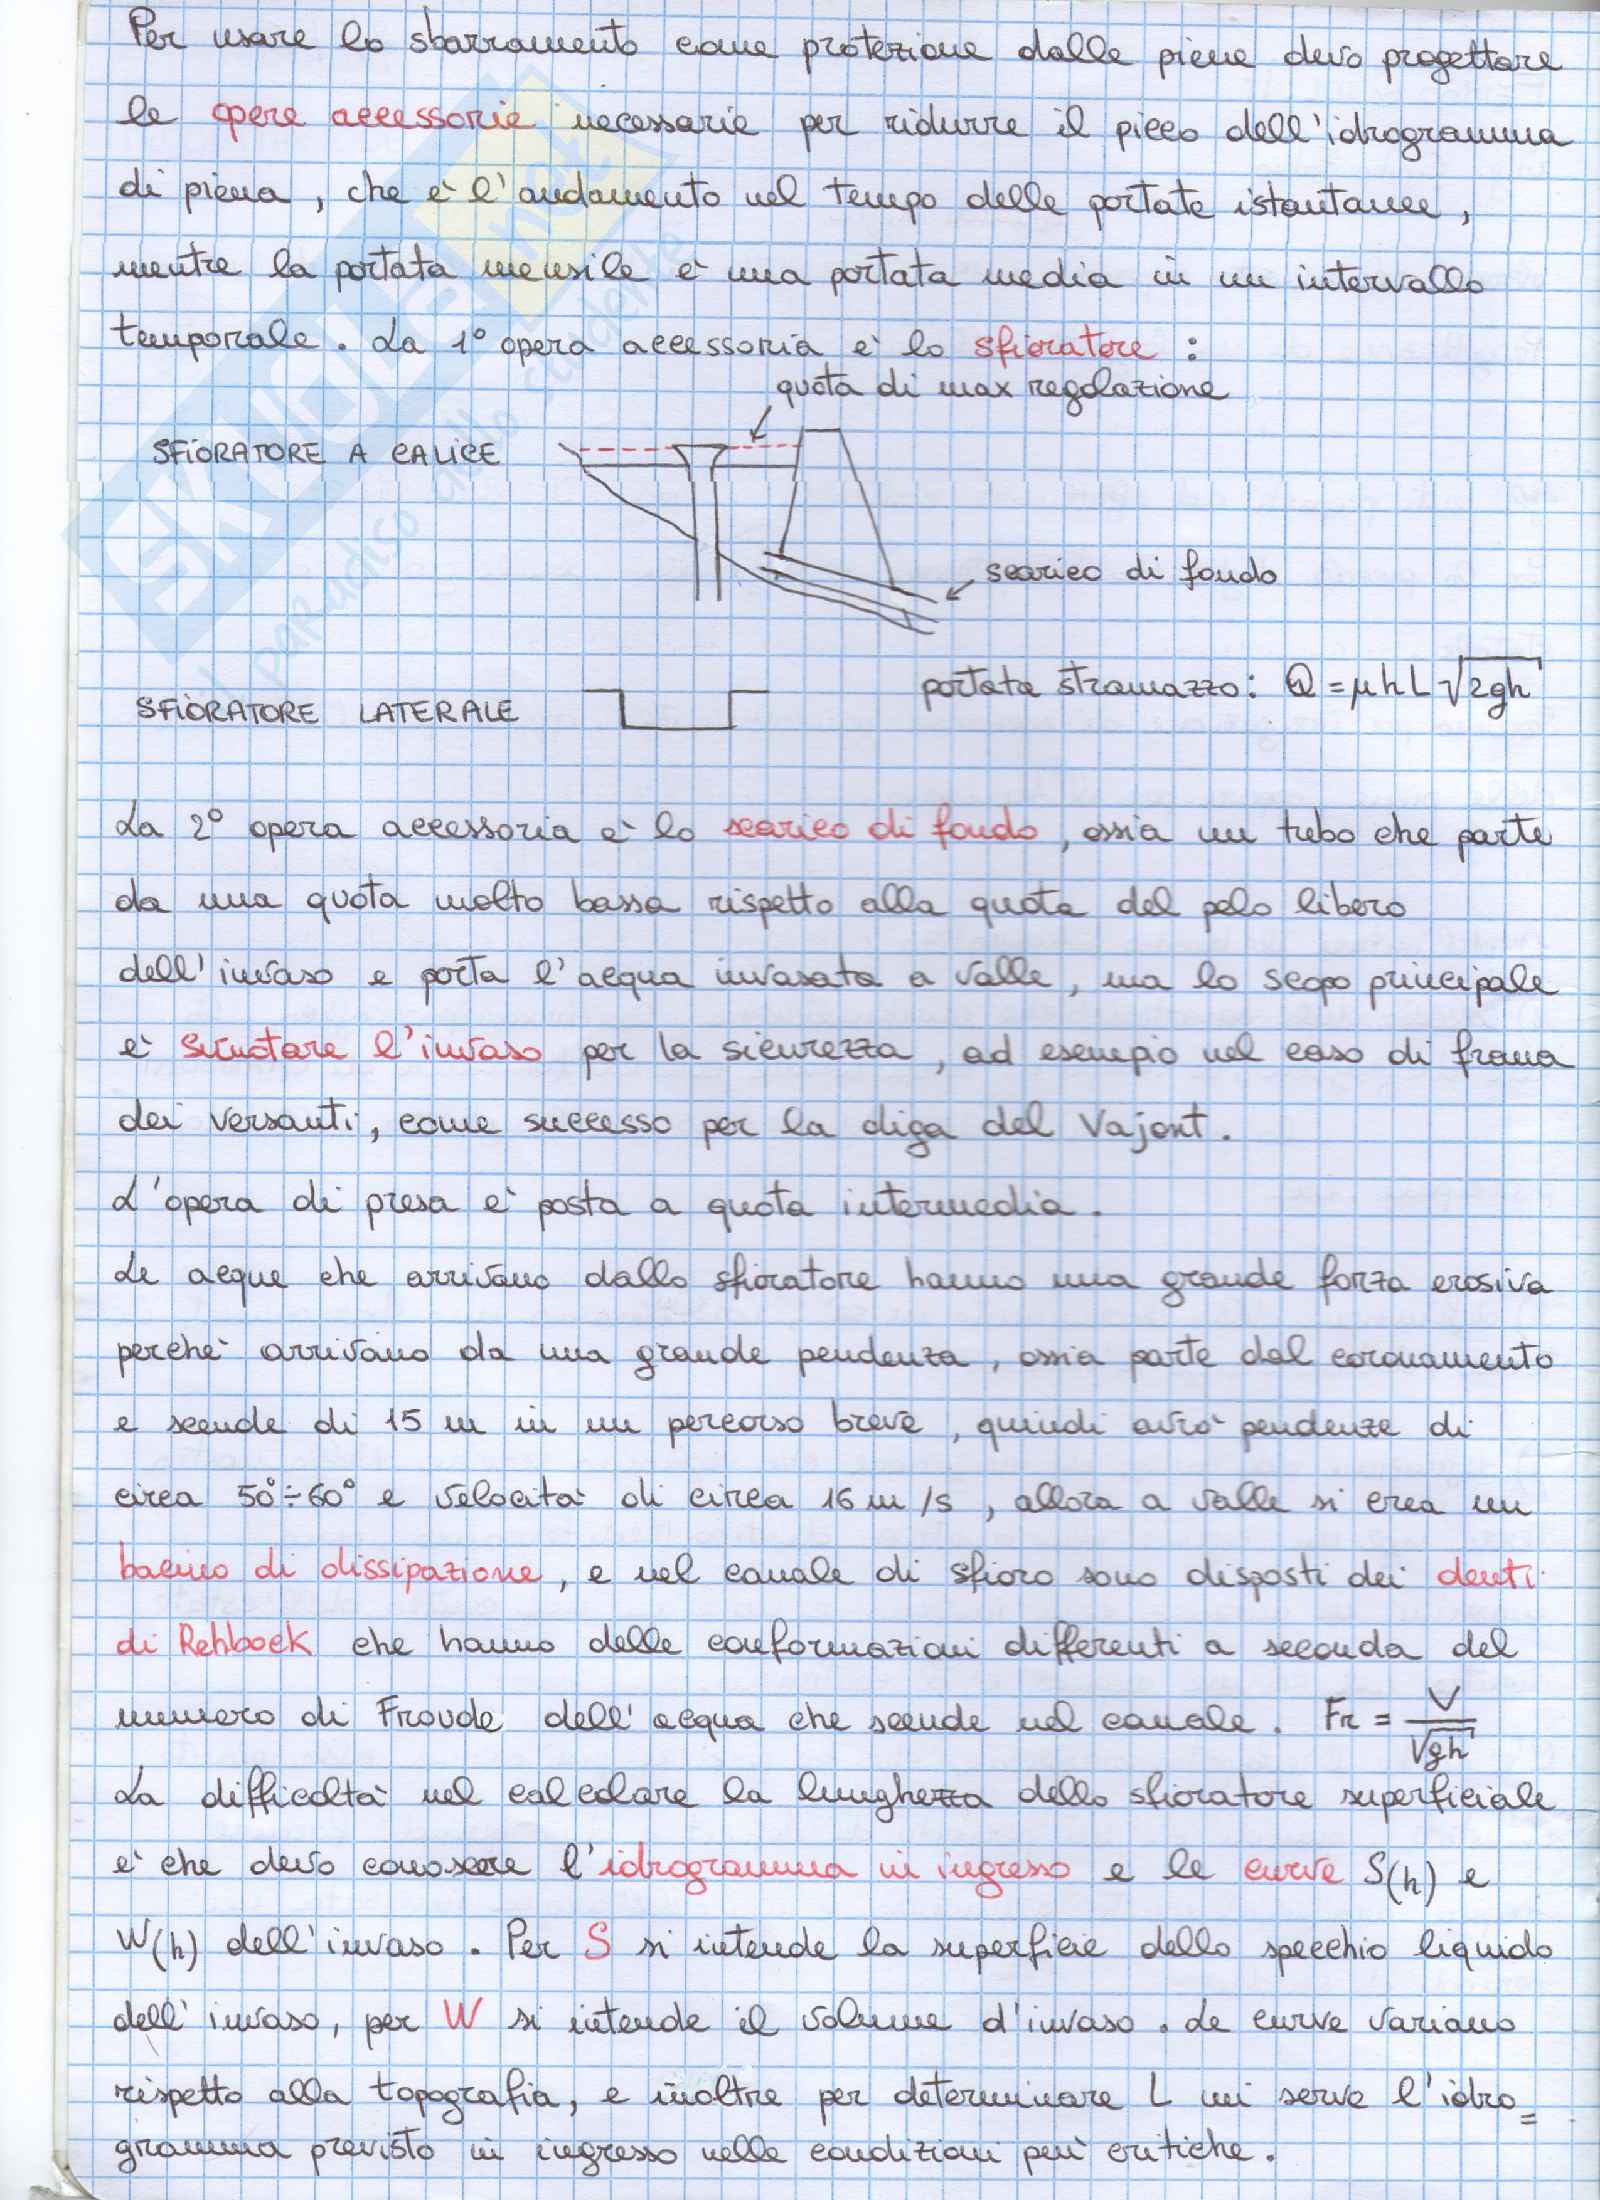 Per usare lo sbarramento come protezione dalle piene devo progettare
le opere accessorie necessarie per ridurre il picco dell'idrogramma
di piena, che è l'andamento nel tempo delle portate istantanee,
mentre la portata mensile è una portata media in un intervallo
temporale. La 1° opera accessoria è lo sfioratore :
quota di max regolazione
SFIORATORE A CALICE
scarico di fondo
portata stramazzo: Q = μ h L √2gh
SFIORATORE LATERALE
La 2° opera accessoria è lo scarico di fondo, ossia un tubo che parte
da una quota molto bassa rispetto alla quota del pelo libero
dell'invaso e porta l'acqua invasata a valle, ma lo scopo principale
è svuotare l'invaso per la sicurezza, ad esempio nel caso di frana
dei versanti, come successo per la diga del Vajont.
L'opera di presa è posta a quota intermedia.
Le acque che arrivano dallo sfioratore hanno una grande forza erosiva
perchè arrivano da una grande pendenza, ossia parte dal coronamento
e scende di 15 m in un percorso breve, quindi avrò pendenze di
circa 50°÷60° e velocità di circa 16 m/s, allora a valle si crea un
bacino di dissipazione, e nel canale di sfioro sono disposti dei denti
di Rehbock che hanno delle conformazioni differenti a seconda del
numero di Froude dell'acqua che scende nel canale. Fr = V/√gh
La difficoltà nel calcolare la lunghezza dello sfioratore superficiale
è che devo conoscere l'idrogramma in ingresso e le curve S(h) e
W(h) dell'invaso. Per S si intende la superficie dello specchio liquido
dell'invaso, per W si intende il volume d'invaso. Le curve variano
rispetto alla topografia, e inoltre per determinare L mi serve l'idro=
gramma previsto in ingresso nelle condizioni più critiche.
SKUOLA.net
il paradiso dello studente